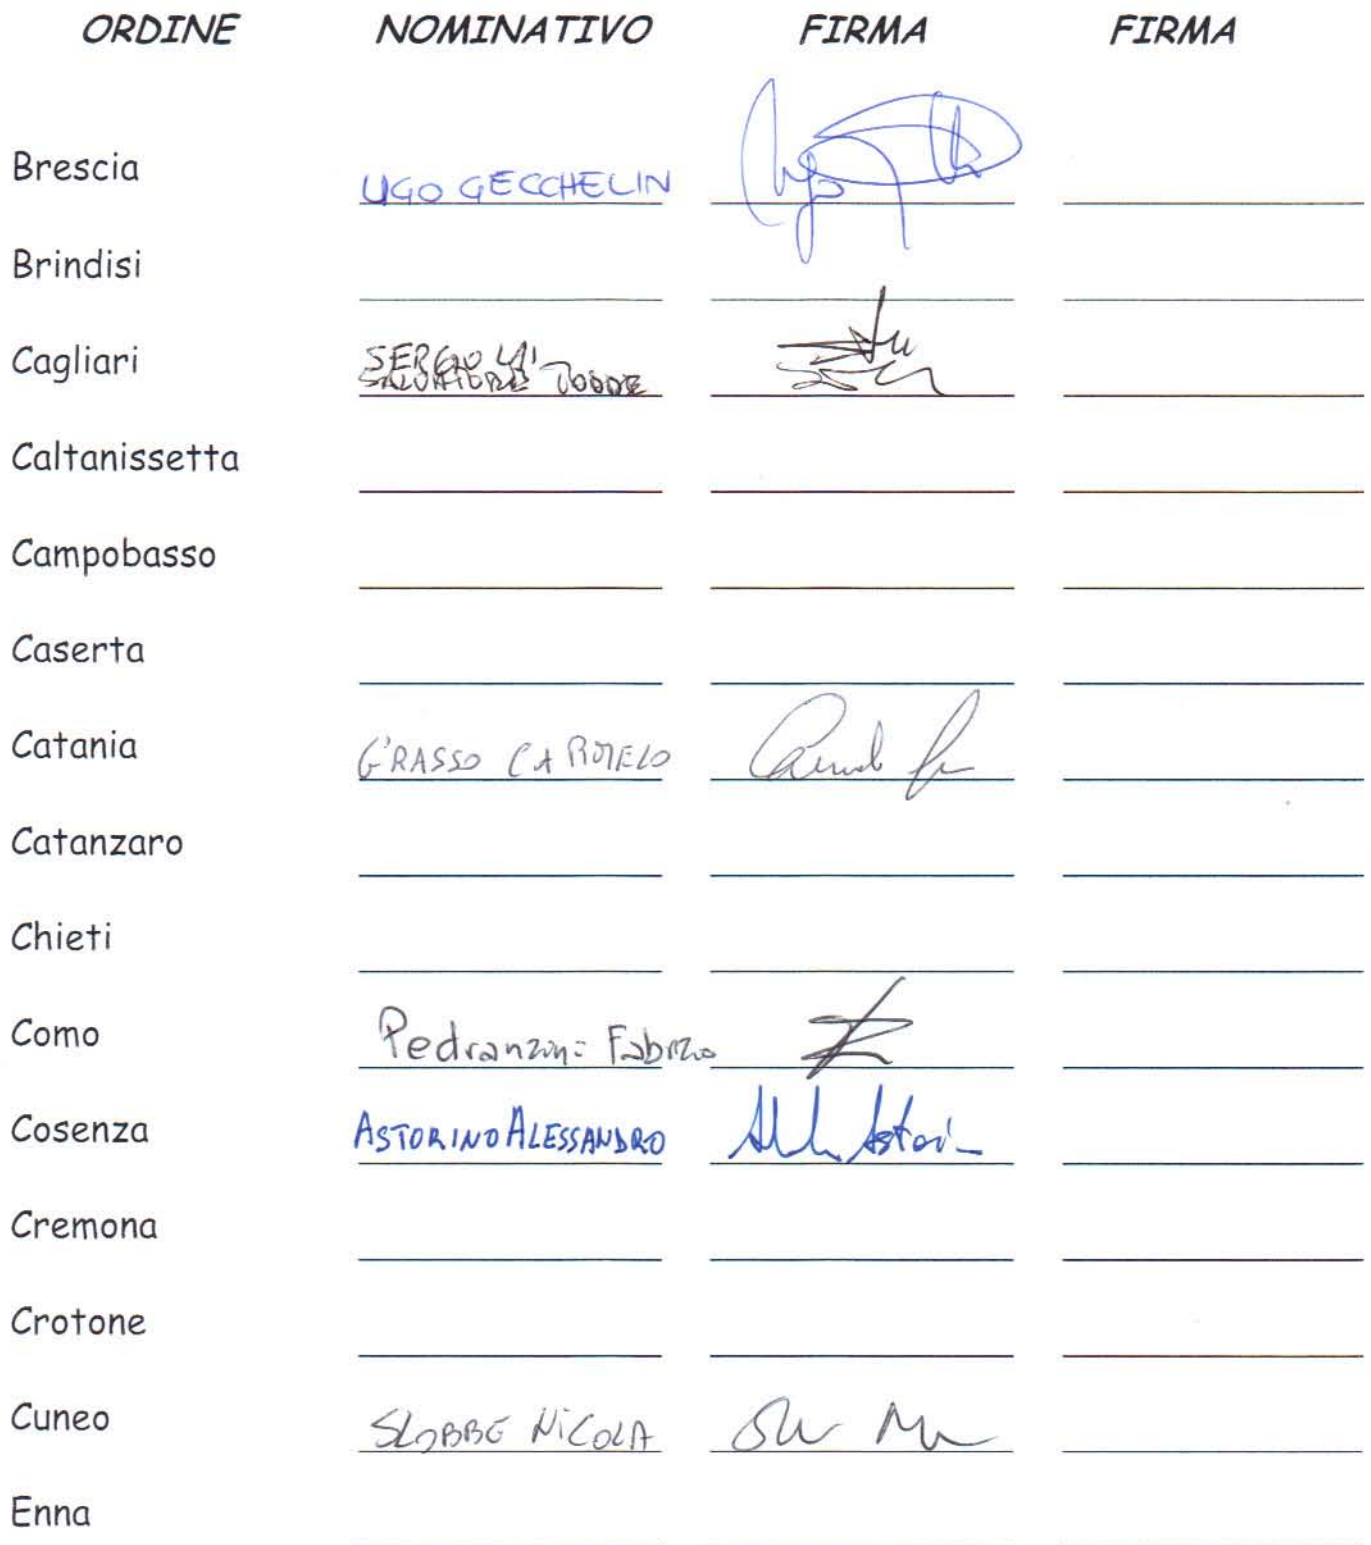 ORDINE NOMINATIVO FIRMA FIRMA
Brescia UGO GECCHELIN
Brindisi
Cagliari SERGIO LAI
SALVATORE TODDE
Caltanissetta
Campobasso
Caserta
Catania GRASSO CARMELO
Catanzaro
Chieti
Como Pedranzini Fabrizio
Cosenza ASTORINO ALESSANDRO
Cremona
Crotone
Cuneo SLOBBE NICOLA
Enna